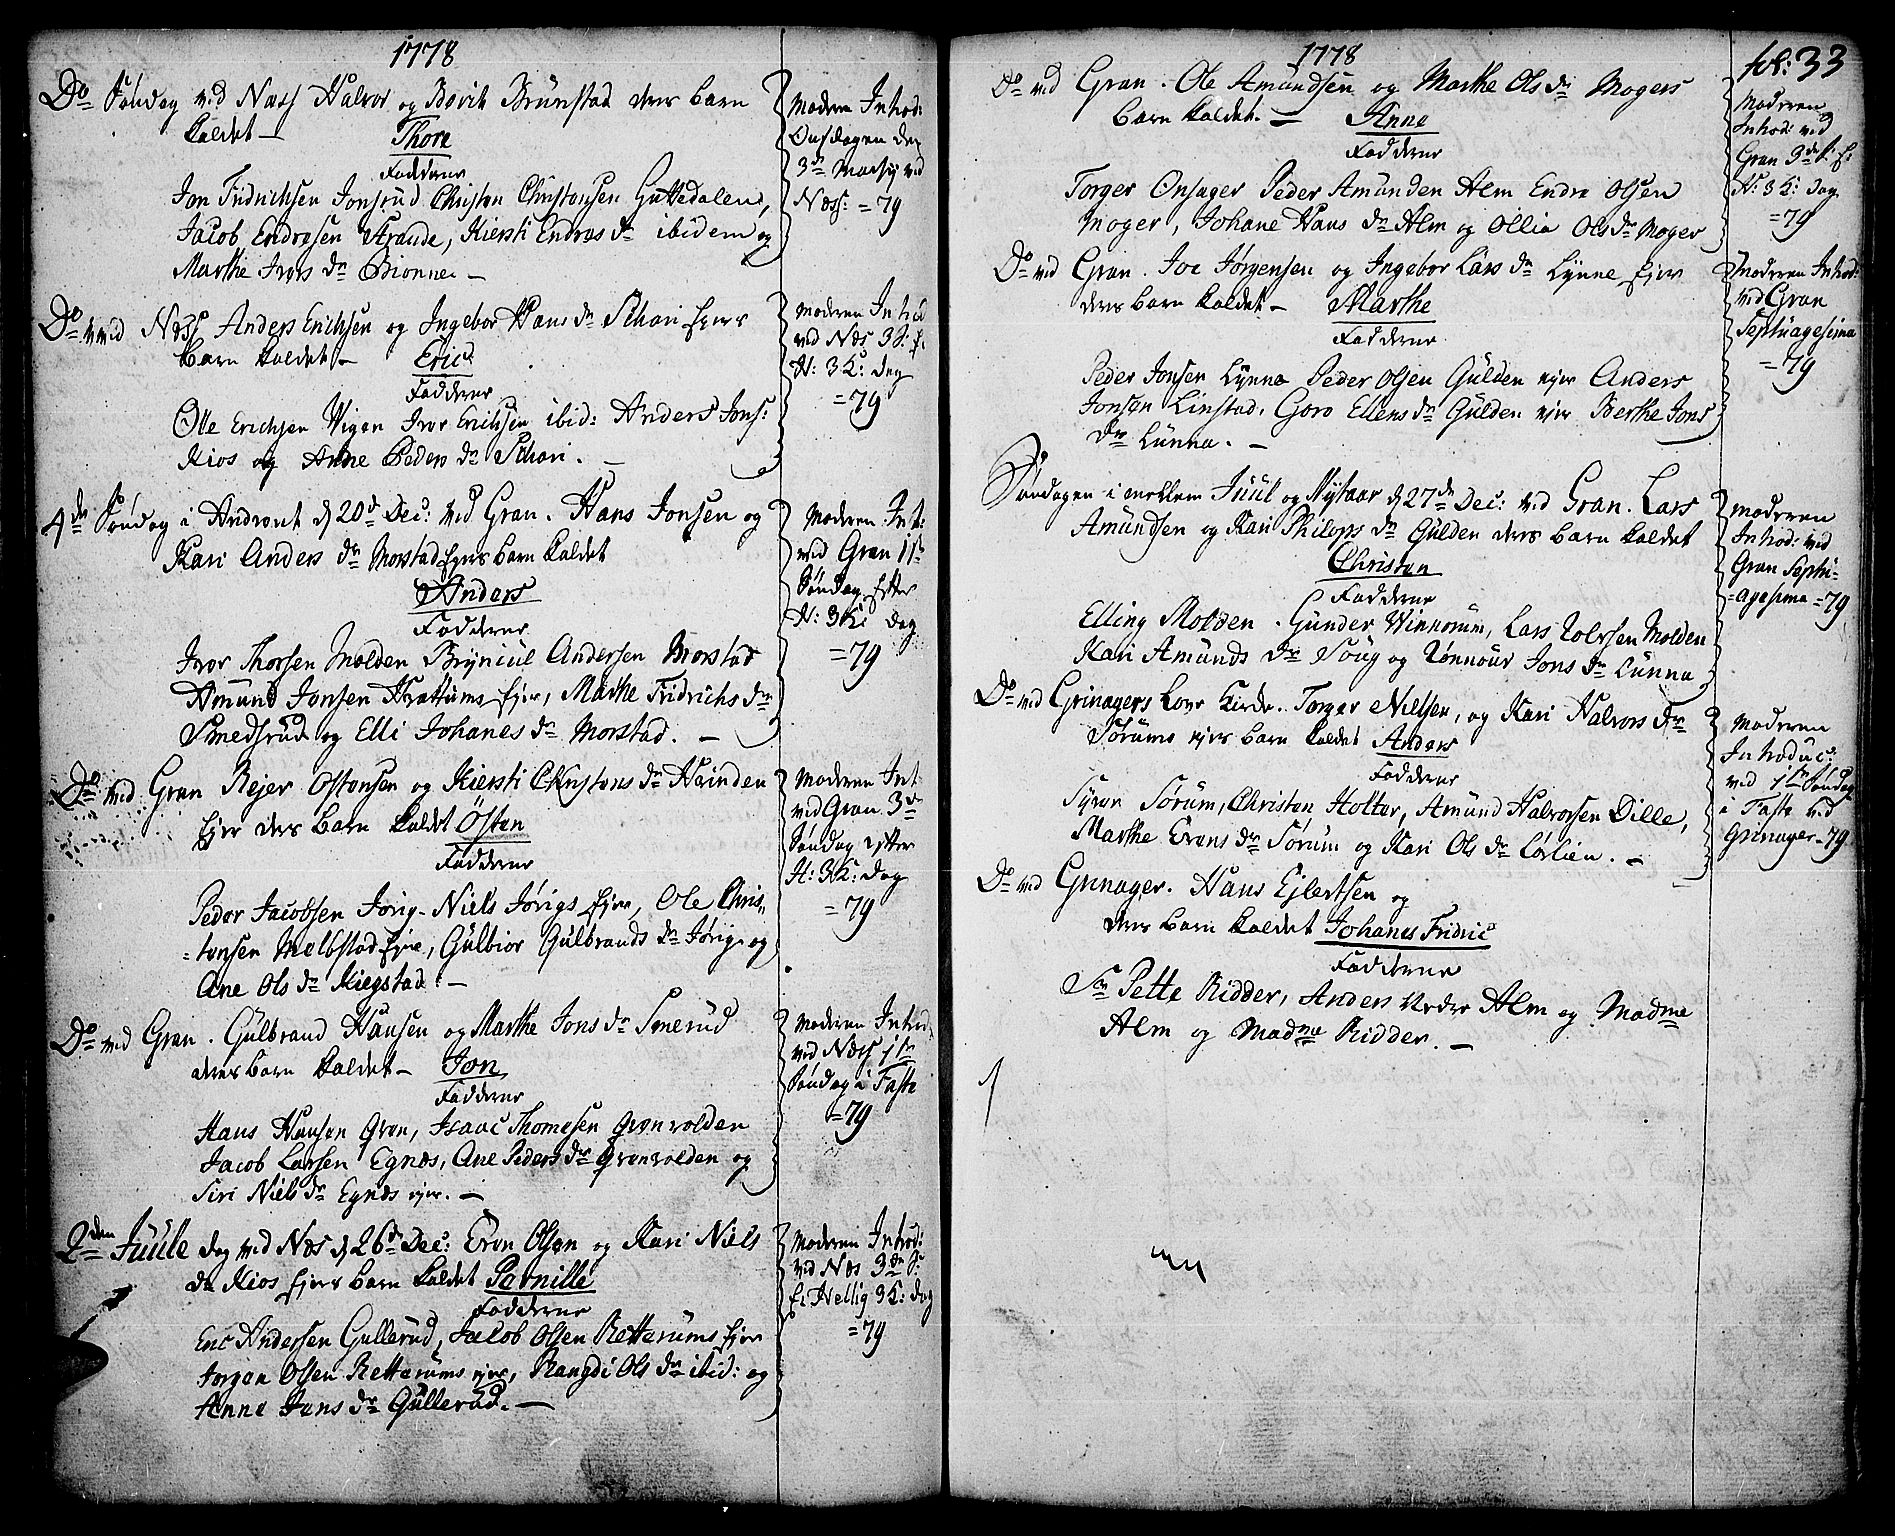 1778
Do Søndag ved Næss Halvor og Berith Brunstad deres barn
kaldet — Thore
Fadderne
Jon Fridrichsen Jonsrud Christen Christensen Guttedalend,
Jacob Endresen Straude, Kiersti Endres dr ibidem og
Marthe Ivers dr Bionne. —
Moderen Introd:
Onsdagen den
3de Martij ved
Næss: = 79
Do ved Næss Anders Erichsen og Ingebor Hans dr Schari Ejers
barn kaldet — Eric
Fadderne
Ole Erichsen Vigen Iver Erichsen ibid: Anders Jons:
Kios og Anne Peders dr Schari. —
Moderen Introd
ved Næs 3 S: f.
H: 3 K: dag
= 79
4de Søndag i Andvent d 20de Dec: ved Gran. Hans Jonsen og
Kari Anders dr Morstad Ejers barn kaldet
Anders
Fadderne
Iver Thorsen Molden Bryniul Andersen Morstad
Amund Jonsen Hrattums Ejer, Marthe Fridrichs dr
Smedsrud og Elli Johanes dr Morstad. —
Moderen Int:
ved Gran 1ste
Søndag Efter
H: 3 K: dag
= 79
Do ved Gran Rejer Ostensen og Kiersti Christens dr Hvinden
Ejer deres barn kaldet Østen
Fadderne
Peder Jacobsen Jørig. Niels Jørigs Ejer, Ole Chris„
=tensen Melbstad Ejer, Gulbior Gulbrands dr Jørig og
Ane Ols dr Kiegstad. —
Moderen Int
ved Gran 3de
Søndag efter
H: 3 K: dag
= 79
Do ved Gran. Gulbrand Hansen og Marthe Jons dr Smerud
deres barn kaldet — Jon
Fadderne
Hans Hansen Gran, Isaac Thomesen Grønvolden
Jacob Larsen Egnæs, Ane Peders dr Grønvolden og
Siri Niels dr Egnæs ejer. —
Moderen Introd
ved Næss 1ste
Søndag i Faste
= 79
2den Juule dag ved Næs d 26de Dec: Even Olsen og Kari Niels
dr Kios Ejers barn kaldet Pernille
Fadderne
Eric Andersen Gullerud, Jacob Olsen Retterums Ejer
Jørgen Olsen Retterums ejer, Rangdi Ols dr ibid: og
Anne Jens dr Gullerud. —
Moderen Introd:
ved Næs 3de S:
E: Hellig 3 K: dag
= 79
1778
fol: 33
Do ved Gran. Ole Amundsen og Marthe Ols dr Mogers
barn kaldet. — Anne
Fadderne
Torger Onsager Peder Amunden Alm Endre Olsen
Moger, Johane Hans dr Alm og Ollia Ols dr Moger
Moderen
Introd: ved
Gran 3de S: E:
H: 3 K: dag
= 79
Do ved Gran. Joe Jørgensen og Ingebor Lars dr Lynne Ejer
deres barn kaldet — Marthe
Fadderne
Peder Jonsen Lynne Peder Olsen Gulden ejer Anders
Jonsen Linstad, Goro Ellens dr Gulden ejer Berthe Jons
dr Lunna. —
Moderen Introd:
ved Gran
Septuagesima
= 79
Søndagen i mellem Juul og Nytaar d 27de Dec: ved Gran. Lars
Amundsen og Kari Philops dr Gulden deres barn kaldet
Christen
Fadderne
Elling Molden. Gunder Winnorum, Lars Tolvsen Molden
Kari Amunds dr Soug og Rønnour Jons dr Lunna
Moderen
Introd: ved
Gran Septu-
=agesima = 79
Do ved Grinagers Love Kirke. Torger Nielsen, og Kari Halvors dr
Sørums ejer barn kaldet Anders
Fadderne
Syver Sørum, Christen Holter, Amund Halvorsen Dille,
Marthe Evens dr Sørum og Kari Ols dr Lørlien. —
Moderen
Introduc:
ved 1ste Søndag
i Faste ved
Grinager = 79
Do ved Grinager. Hans Ejlertsen og
deres barn kaldet Johanes Fridric
Fadderne
Sr Pette Ridder, Anders Alm og Madme
Alm og Madme Ridder. —